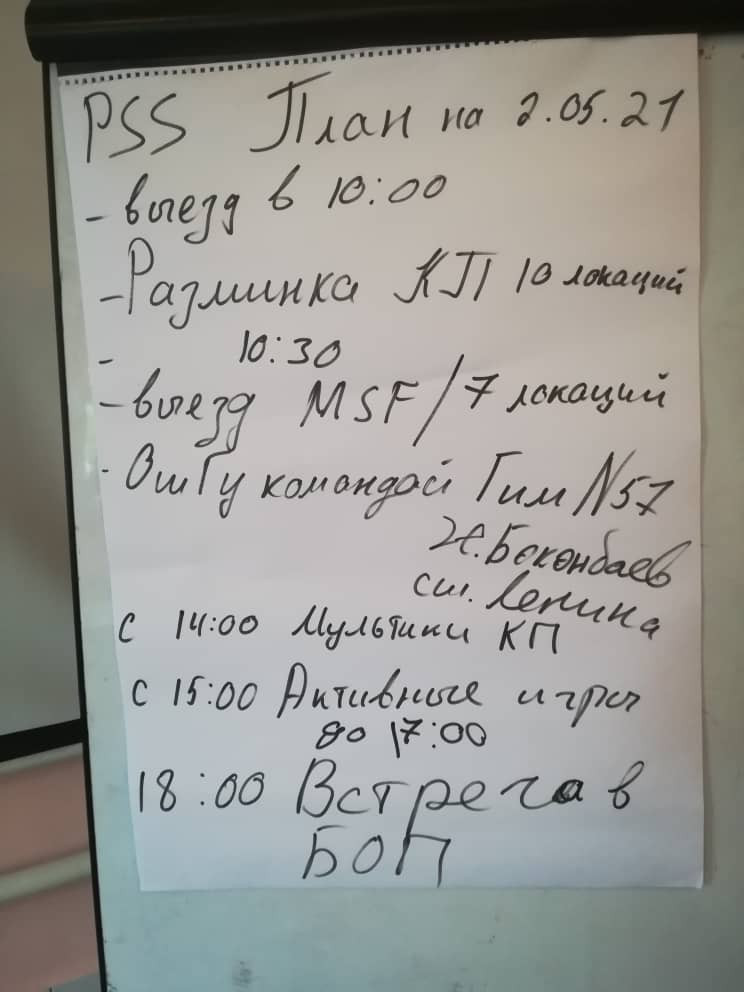 PSS План на 2.05.21
- выезд в 10:00
- Разминка КП 10 локаций
- 10:30
- выезд MSF/7 локаций
- ОшГу командой Гим N57
Ж.Боконбаев
сш. Ленина
с 14:00 Мультики КП
с 15:00 Активные игры
до 17:00
18:00 Встреча в
БОП